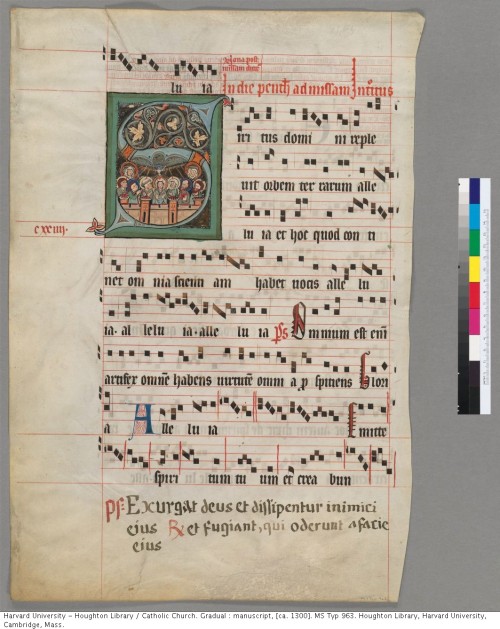 lu ia In die penth ad missam Introitus
Spiri tus domi ni reple
uit orbem ter rarum alle
lu ia et hoc quod con ti
cxxiiij.
net om nia scienti am habet uocis alle lu
ia. al lelu ia. alle lu ia ps Omnium est eni
artifex omnē habens uirtutē omni a p spitiens Glori
a Alle lu ia Emitte
spiri tum tu um et crea bun
ps. Exurgat deus et dissipentur inimici
eius R et fugiant, qui oderunt a facie
eius
Harvard University - Houghton Library / Catholic Church. Gradual : manuscript, [ca. 1300]. MS Typ 963. Houghton Library, Harvard University,
Cambridge, Mass.